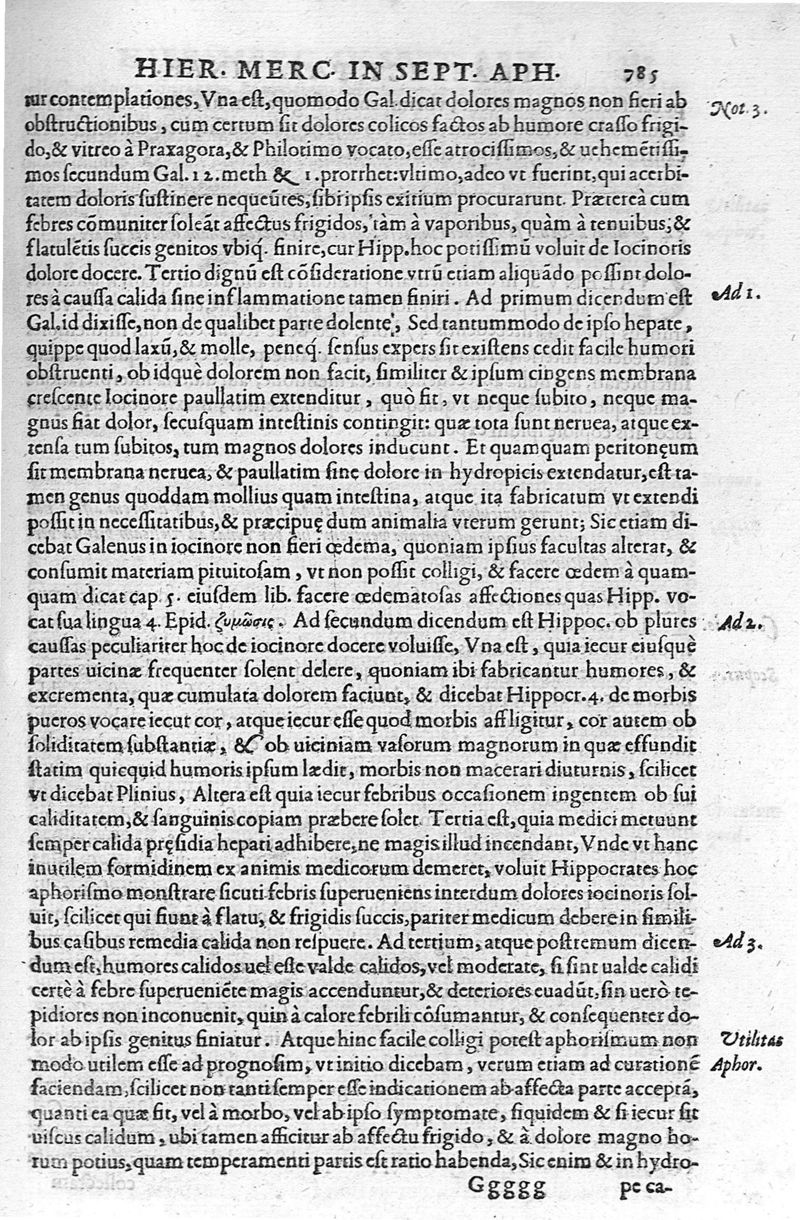 HIER. MERC. IN SEPT. APH. 785
tur contemplationes, Vna est, quomodo Gal. dicat dolores magnos non fieri ab
Not. 3.
obstructionibus, cum certum sit dolores colicos factos ab humore crasso frigi-
do, & vitreo à Praxagora, & Philotimo vocato, esse atrocissimos, & uehemẽtissi-
mos secundum Gal. 12. meth & 1. prorrhet: vltimo, adeo vt fuerint, qui acerbi-
tatem doloris sustinere nequeũtes, sibi ipsis exitium procurarunt. Prætereà cum
febres cõmuniter soleãt affectus frigidos, tàm à vaporibus, quàm à tenuibus, &
flatulẽtis succis genitos vbiq. finire, cur Hipp. hoc potissimũ voluit de Iocinoris
dolore docere. Tertio dignũ est cõsideratione vtrũ etiam aliquãdo possint dolo-
res à caussa calida sine inflammatione tamen finiri. Ad primum dicendum est
Ad 1.
Gal. id dixisse, non de qualibet parte dolente, Sed tantummodo de ipso hepate,
quippe quod laxũ, & molle, peneq. sensus expers sit existens cedit facile humori
obstruenti, ob idquè dolorem non facit, similiter & ipsum cingens membrana
crescente Iocinore paullatim extenditur, quò fit, vt neque subito, neque ma-
gnus fiat dolor, secusquam intestinis contingit: quæ tota sunt neruea, atque ex-
tensa tum subitos, tum magnos dolores inducunt. Et quamquam peritonęum
sit membrana neruea, & paullatim sine dolore in hydropicis extendatur, est ta-
men genus quoddam mollius quam intestina, atque ita fabricatum vt extendi
possit in necessitatibus, & præcipuę dum animalia vterum gerunt; Sic etiam di-
cebat Galenus in iocinore non fieri œdema, quoniam ipsius facultas alterat, &
consumit materiam pituitosam, vt non possit colligi, & facere œdem à quam-
quam dicat cap. 5. eiusdem lib. facere œdematosas affectiones quas Hipp. vo-
cat sua lingua 4. Epid. ζυμῶσις. Ad secundum dicendum est Hippoc. ob plures
Ad 2.
caussas peculiariter hoc de iocinore docere voluisse, Vna est, quia iecur eiusquè
partes uicinæ frequenter solent delere, quoniam ibi fabricantur humores, &
excrementa, quæ cumulata dolorem faciunt, & dicebat Hippocr. 4. de morbis
pueros vocare iecur cor, atque iecur esse quod morbis affligitur, cor autem ob
soliditatem substantiæ, & ob uiciniam vasorum magnorum in quæ effundit
statim quicquid humoris ipsum lædit, morbis non macerari diuturnis, scilicet
vt dicebat Plinius, Altera est quia iecur febribus occasionem ingentem ob sui
caliditatem, & sanguinis copiam præbere solet. Tertia est, quia medici metuunt
semper calida pręsidia hepati adhibere, ne magis illud incendant, Vnde vt hanc
inutilem formidinem ex animis medicorum demeret, voluit Hippocrates hoc
aphorismo monstrare sicuti febris superueniens interdum dolores iocinoris sol-
uit, scilicet qui fiunt à flatu, & frigidis succis, pariter medicum debere in simili-
bus casibus remedia calida non respuere. Ad tertium, atque postremum dicen-
Ad 3.
dum est, humores calidos uel esse valde calidos, vel moderate, si sint ualde calidi
certè à febre superueniẽte magis accenduntur, & deteriores euadũt, sin uerò te-
pidiores non inconuenit, quin à calore febrili cõsumantur, & consequenter do-
lor ab ipsis genitus finiatur. Atque hinc facile colligi potest aphorismum non
Vtilitas
modo utilem esse ad prognosim, vt initio dicebam, verum etiam ad curationẽ
Aphor.
faciendam, scilicet non tanti semper esse indicationem ab affecta parte acceptã,
quanti ea quæ sit, vel à morbo, vel ab ipso symptomate, siquidem & si iecur sit
uiscus calidum, ubi tamen afficitur ab affectu frigido, & à dolore magno ho-
rum potius, quam temperamenti partis est ratio habenda, Sic enim & in hydro-
Ggggg pe ca-